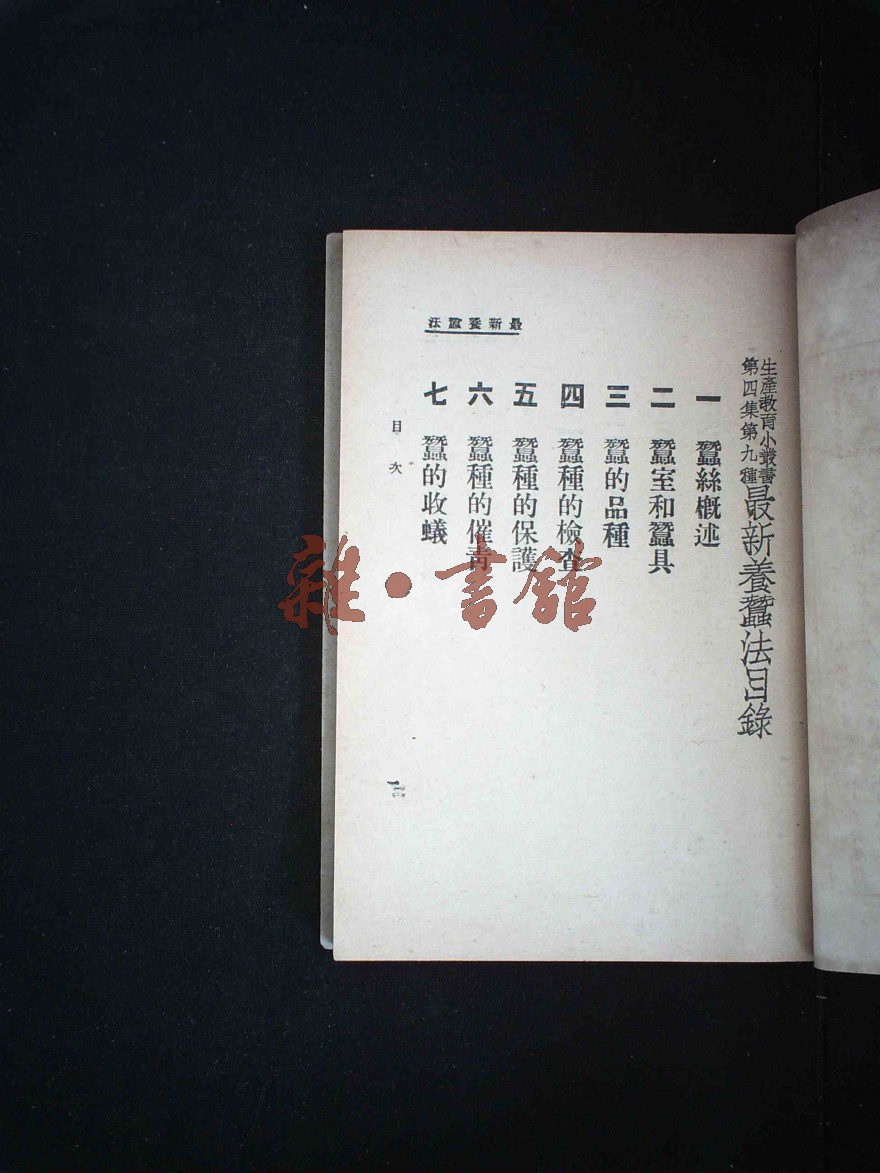 最新養蠶法
生產教育小叢書
第四集第九種
最新養蠶法目錄
一 蠶絲概述
二 蠶室和蠶具
三 蠶的品種
四 蠶種的檢查
五 蠶種的保護
六 蠶種的催青
七 蠶的收蟻
目次
雜·書館